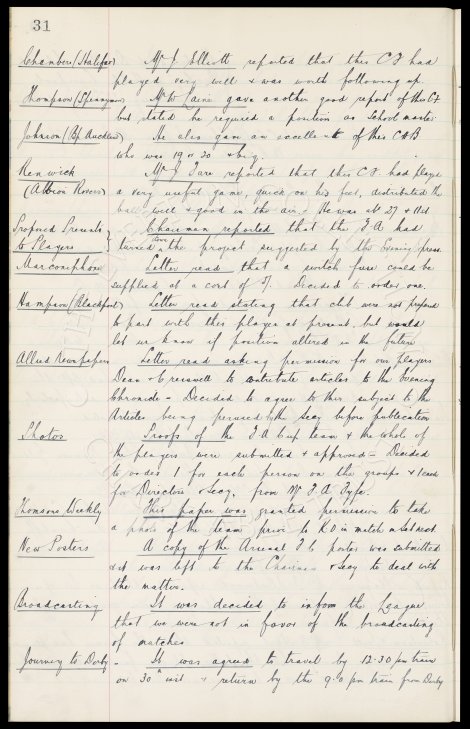 31
Chambers (Halifax) Mr J Elliott reported that this C F had
played very well & was worth following up.
Thompson (Spennymoor) Mr W gave another good report of this C H
but stated he required a position as School master
Johnson (Bp Auckland) He also gave an excellent of this C H B
who was 19 or 20 & big.
Renwick Mr J reported that this C F. had played
(Albion Rovers) a very useful game, quick on his feet, distributed the
ball well & good in the air. He was at 27 & 11st
Proposed Presents Chairman reported that the F A had
to Players } turned down the project suggested by the Evening press
Marconiphone Letter read that a switch fuse could be
supplied at a cost of Decided to order one.
Hampson (Blackpool) Letter read stating that club were not prepared
to part with this player at present, but would
let us know if position altered in the future
Allied Newspapers Letter read asking permission for our players
Dean & Cresswell to contribute articles to the Evening
Chronicle - Decided to agree to this subject to the
Articles being perused by the Secy before publication
Photos Proofs of the F A Cup team & the whole of
the players were submitted & approved - Decided
to order 1 for each person on the groups & 1 each
for Directors & Secy, from Mr F A Fyfe.
Thomsons Weekly This paper was granted permission to take
a photo of the team prior to K O in match
New Posters A copy of the Arsenal F C poster was submitted
& it was left to the Chairman & Secy to deal with
the matter.
Broadcasting It was decided to inform the League
that we were not in favor of the broadcasting
of matches
Journey to Derby - It was agreed to travel by 12-30 pm train
on 30th inst & return by the 9.0 pm train from Derby